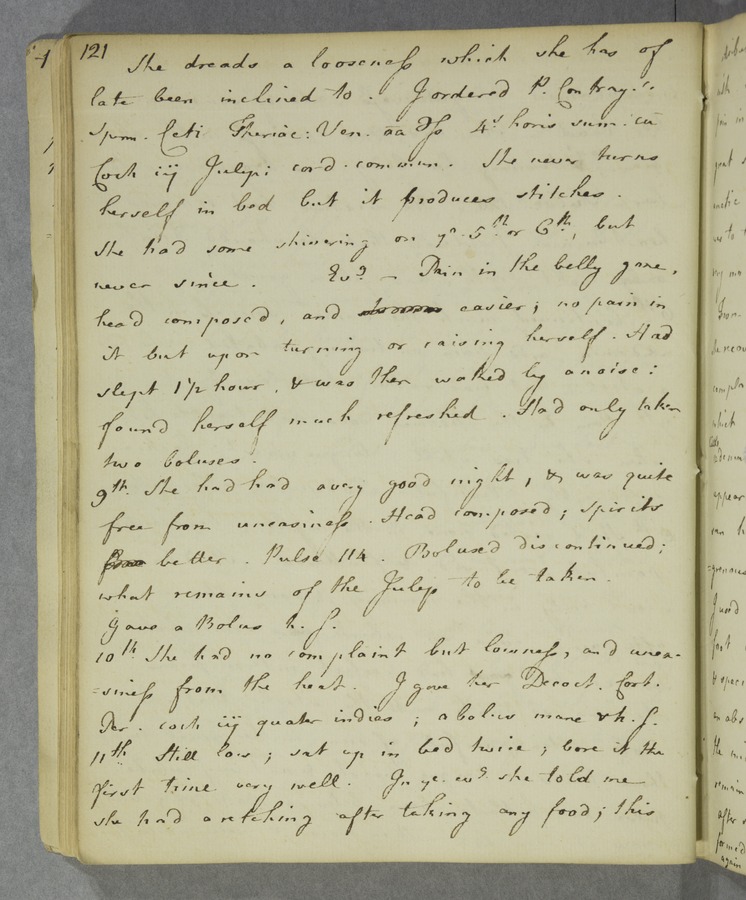 121
She dreads a looseness which she has of
late been inclined to. I ordered P. Contray.
Sperm. Ceti Theriac: Ven. āā ℈ſs 4s horis sum. cū
Coch iij Julep: cord. commun. She never turns
herself in bed but it produces stitches.
She had some shivering on ye. 5th or 6th, but
never since. Evg – Pain in the belly gone,
head composed, and easier; no pain in
it but upon turning or raising herself. Had
slept 1½ hour, & was then waked by a noise:
found herself much refreshed. Had only taken
two boluses.
9th. She had had a very good night, & was quite
free from uneasiness. Head composed; spirits
better. Pulse 114. Bolused discontinued;
what remains of the Julep to be taken.
Gave a Bolus h. s.
10th She had no complaint but lowness, and unea-
=siness from the heat. I gave her Decoct. Cort.
Per. coch iij quater indies; a bolus mane & h. s.
11th Still low; sat up in bed twice; bore it the
first time very well. In ye. evg. she told me
she had a retching after taking any food; this